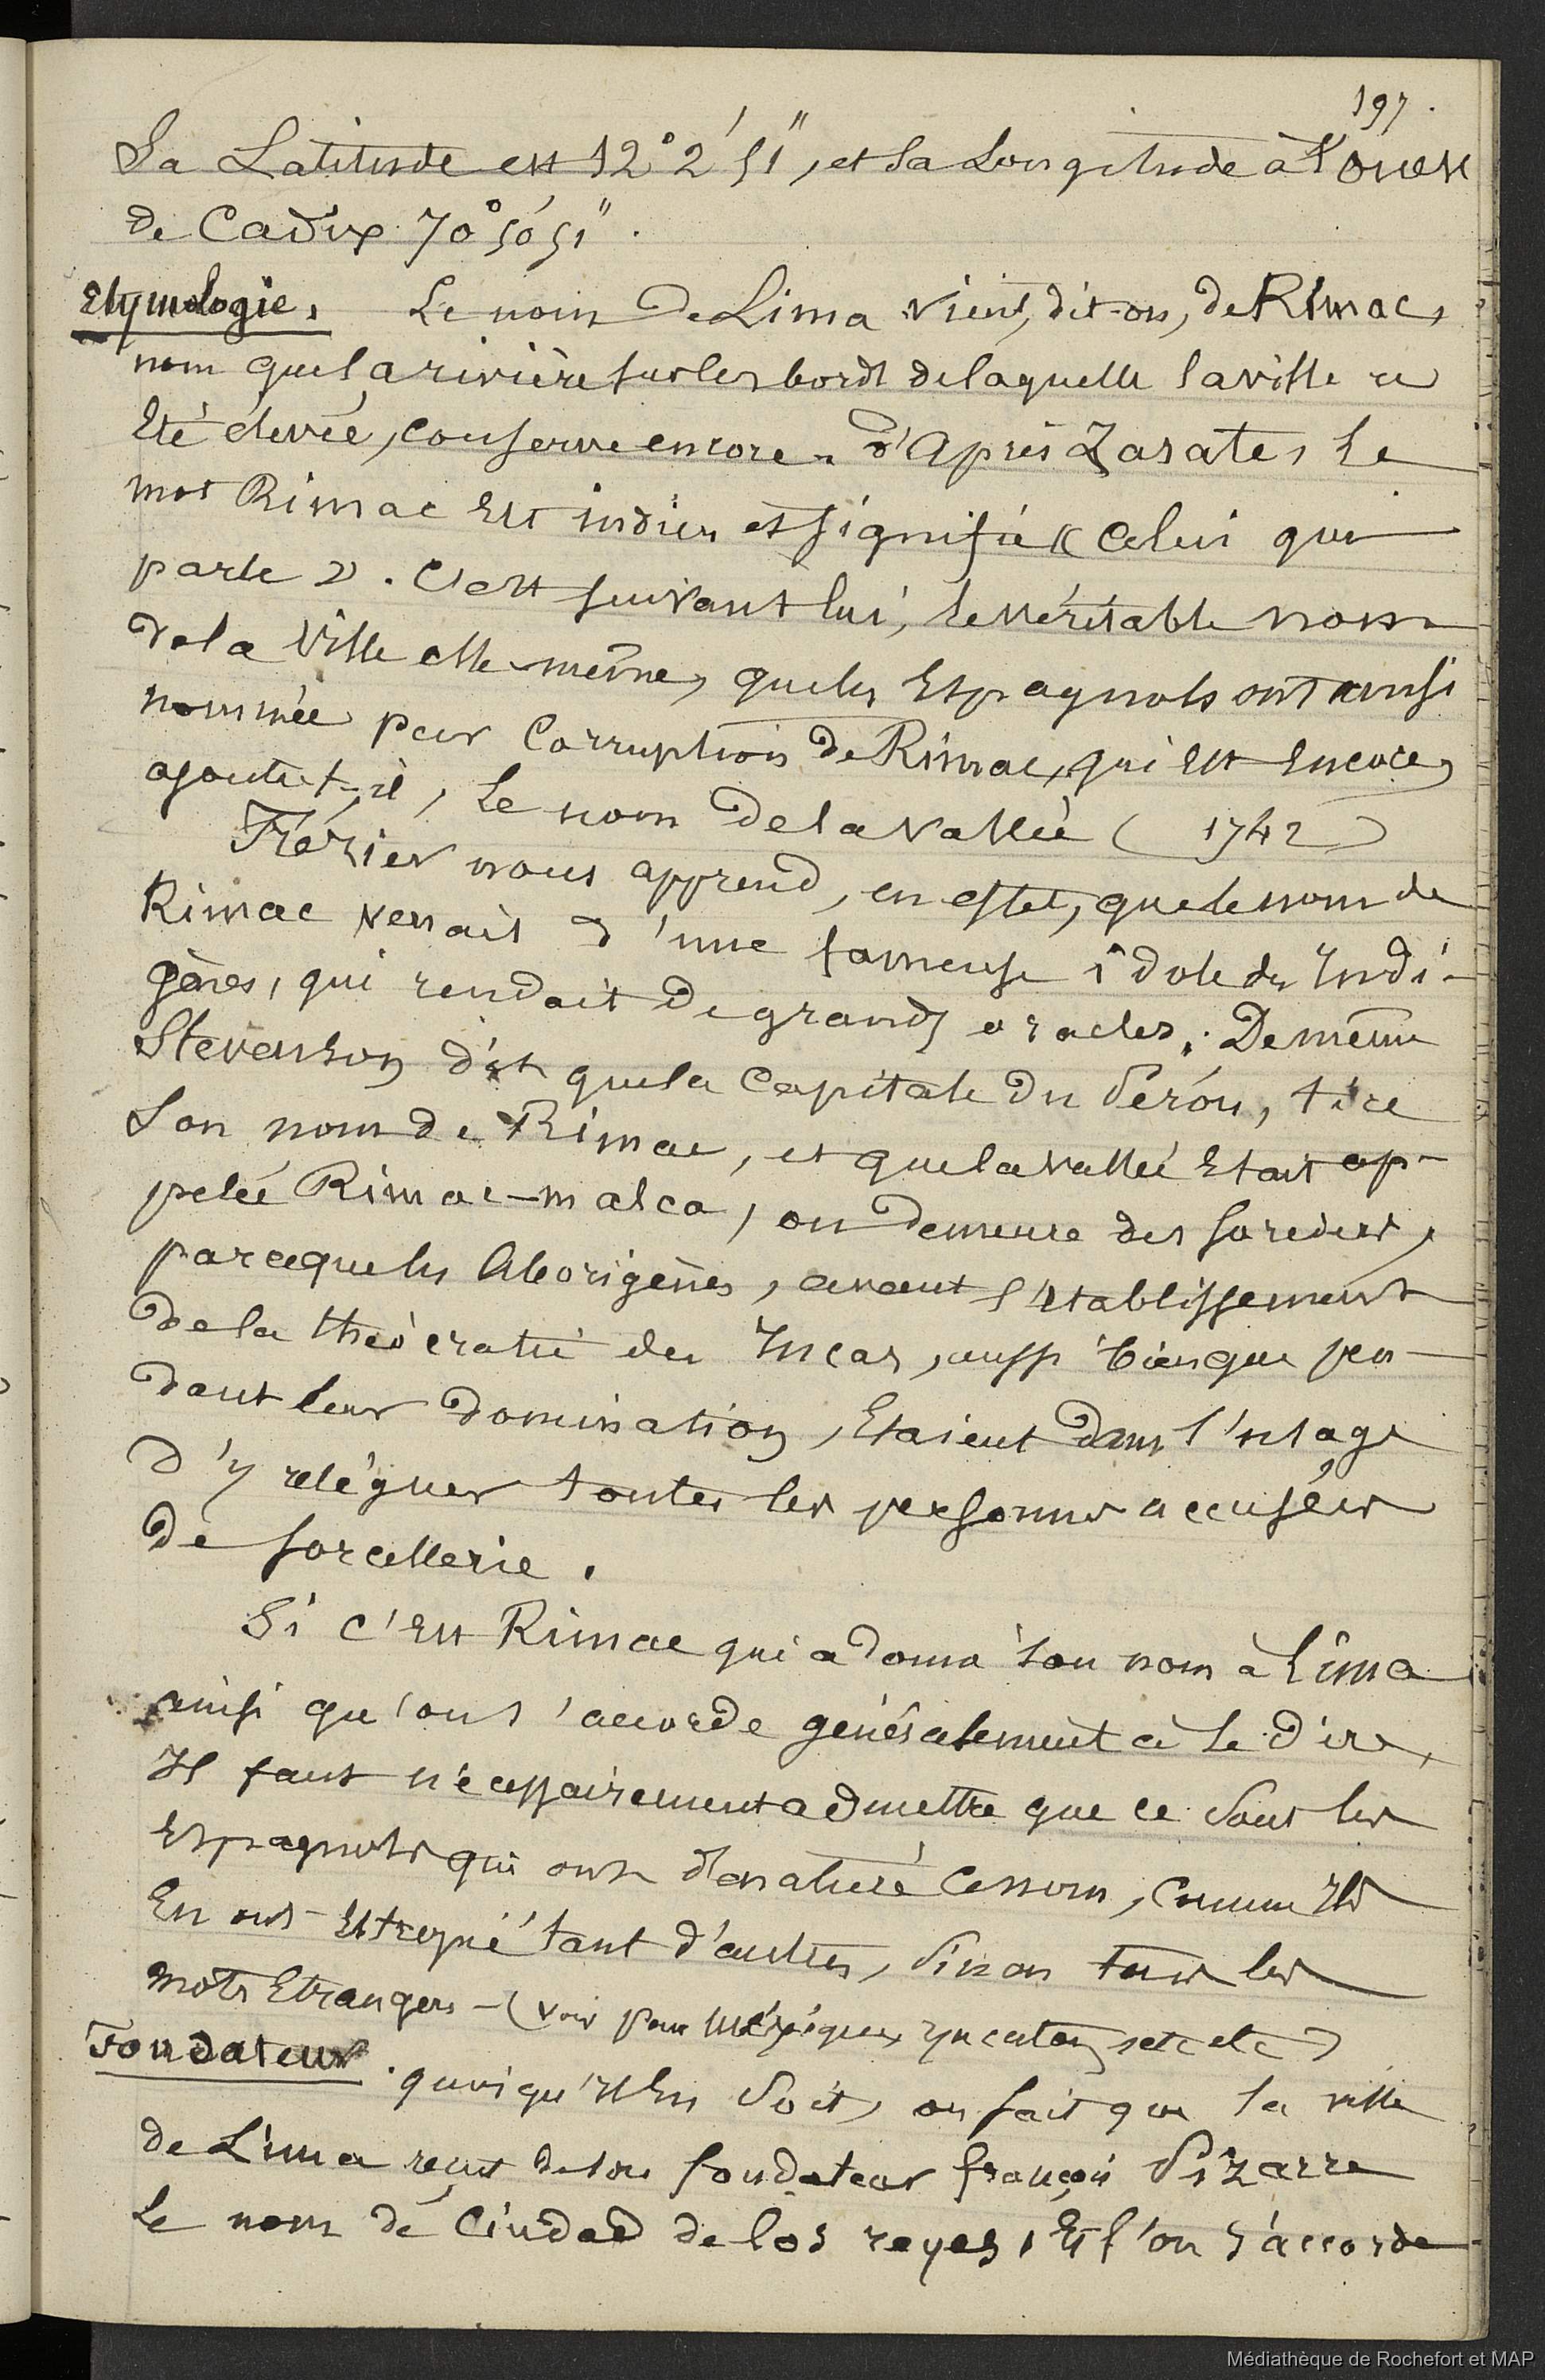 197.
Sa Latitude est 12° 2' 51", et sa Longitude à l'ouest
de Cadix 70° 50' 51".
Etymologie. Le nom de Lima vient, dit-on, de Rimac,
nom que la rivière sur les bords de laquelle la ville a
été élevée, conserve encore. d'Après Zarate, le
mot Rimac Est indien et signifie « Celui qui
parle ». C'est suivant lui, le véritable nom
de la Ville elle-même, que les Espagnols ont ainsi
nommée par Corruption de Rimac, qui Est Encore,
ajoute-t-il, Le nom de la vallée (1742)
Frézier nous apprend, en effet, que le nom de
Rimac venait d'une fameuse idole des Indi-
gènes, qui rendait de grands oracles. De même
Stevenson dit que la Capitale du Pérou, tire
Son nom de Rimac, et que la vallée Etait ap-
pelée Rimac-malca, ou demeure des sorciers,
parceque les Aborigènes, avant l'établissement
de la théocratie des Incas, aussi bien que pen-
dant leur domination, Etaient dans l'usage
d'y reléguer toutes les personnes accusées
de sorcellerie.
Si c'Est Rimac qui a donné son nom à Lima
ainsi qu'on s'accorde généralement à le dire,
Il faut nécessairement admettre que ce sont les
Espagnols qui ont dénaturé ce nom, comme Ils
En ont Estropié tant d'autres, sinon tous les
mots Etrangers - (voir pour Mexique, Yucatan, etc etc)
Fondateur. quoiqu'Il En soit, on sait que la ville
de Lima reçut de son fondateur françois Pizarre
Le nom de Ciudad de los reyes, Et l'on s'accorde
Médiathèque de Rochefort et MAP